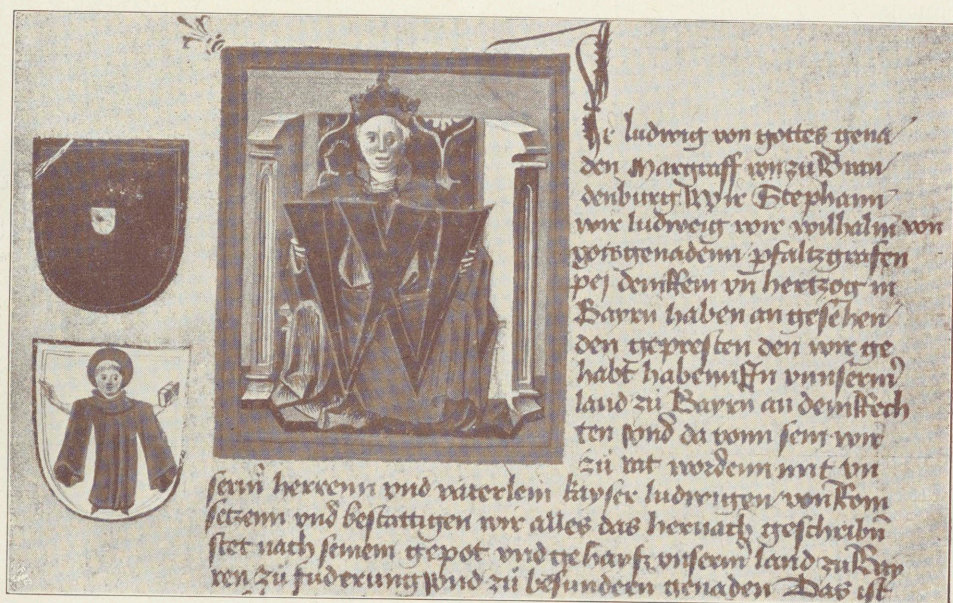 Wir ludwig von gottes gena
den Margraff von zu Bran
denburg Wyr Stephann
wir ludweig wir wilhalm von
gotsgenadenn pfaltzgrafen
pej dem Rein vn hertzog in
Bayrn haben an gesehen
den gepresten den wir ge
habt habenn In vnnserm
land zu Bayrn an dem Rech
ten vnd da vonn sein wir
zu rat wordenn mit vn
serm herrenn vnd vaterlein kayser ludwigen von Rom
setzenn vnd bestattigen wir alles das hernach geschribn
stet nach seinem gepot vnd gehayß vnserm land zu Bay
ren zu fuderung vnd zu besundern genaden Das ist